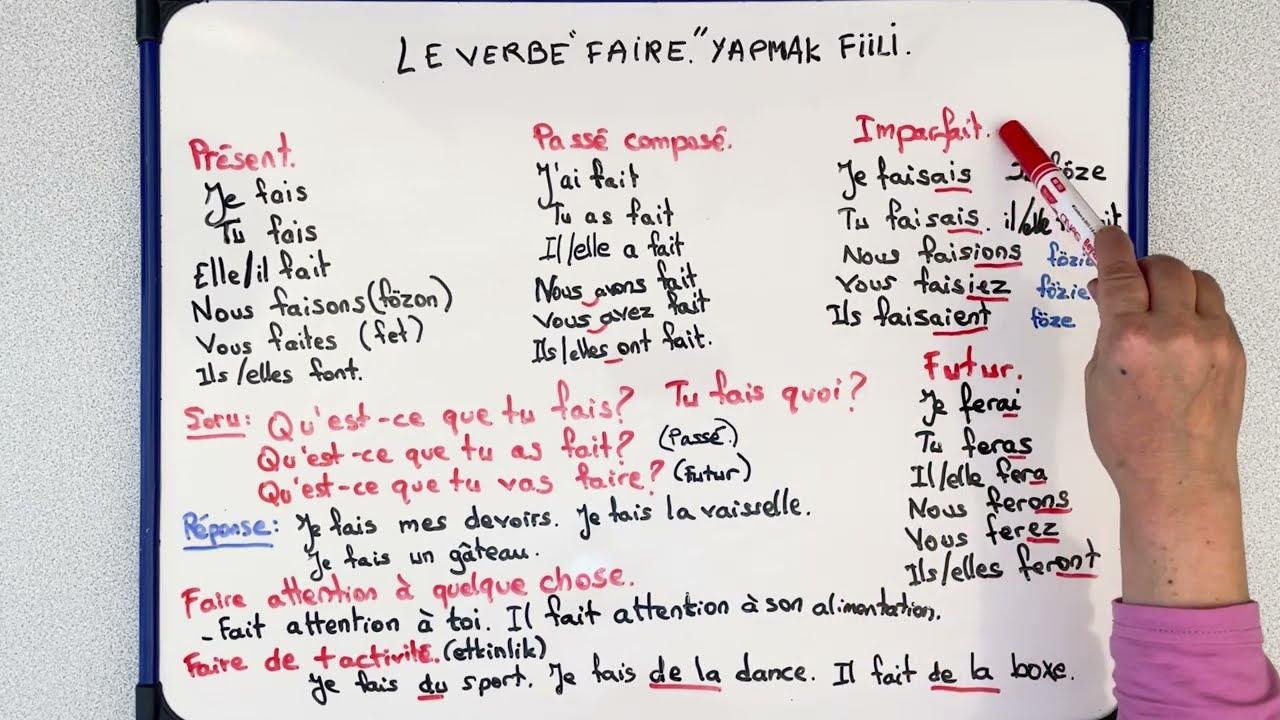 LE VERBE "FAIRE." YAPMAK FiiLi.
Présent.
Je fais
Tu fais
Elle/il fait
Nous faisons (fözon)
Vous faites (fet)
Ils/elles font.
Passé composé.
J'ai fait
Tu as fait
Il/elle a fait
Nous avons fait
Vous avez fait
Ils/elles ont fait.
Imparfait.
Je faisais föze
Tu faisais. il/elle
Nous faisions
Vous faisiez fözie
Ils faisaient föze
Futur.
Je ferai
Tu feras
Il/elle fera
Nous ferons
Vous ferez
Ils/elles feront
Soru: Qu'est-ce que tu fais? Tu fais quoi?
Qu'est-ce que tu as fait? (Passé.)
Qu'est-ce que tu vas faire? (Futur)
Réponse: Je fais mes devoirs. Je fais la vaisselle.
Je fais un gâteau.
Faire attention à quelque chose.
- Fait attention à toi. Il fait attention à son alimentation.
Faire de + activité. (etkinlik)
Je fais du sport. Je fais de la dance. Il fait de la boxe.